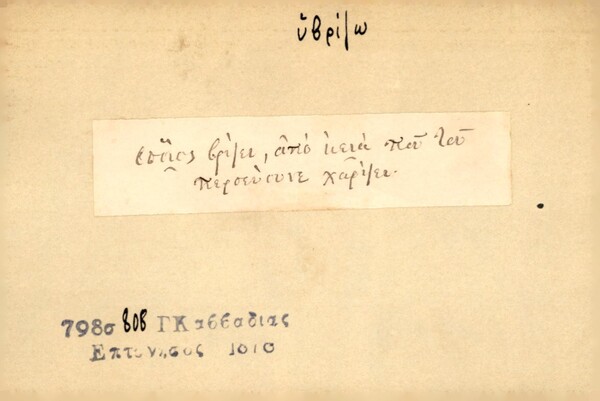 ὑβρίζω
ὁποῖος βρίζει, ἀπὸ κειὰ ποῦ τοῦ
περσεύουνε χαρίζει.
798σ 808 ΓΚαββαδιας
Επτανησος 1876